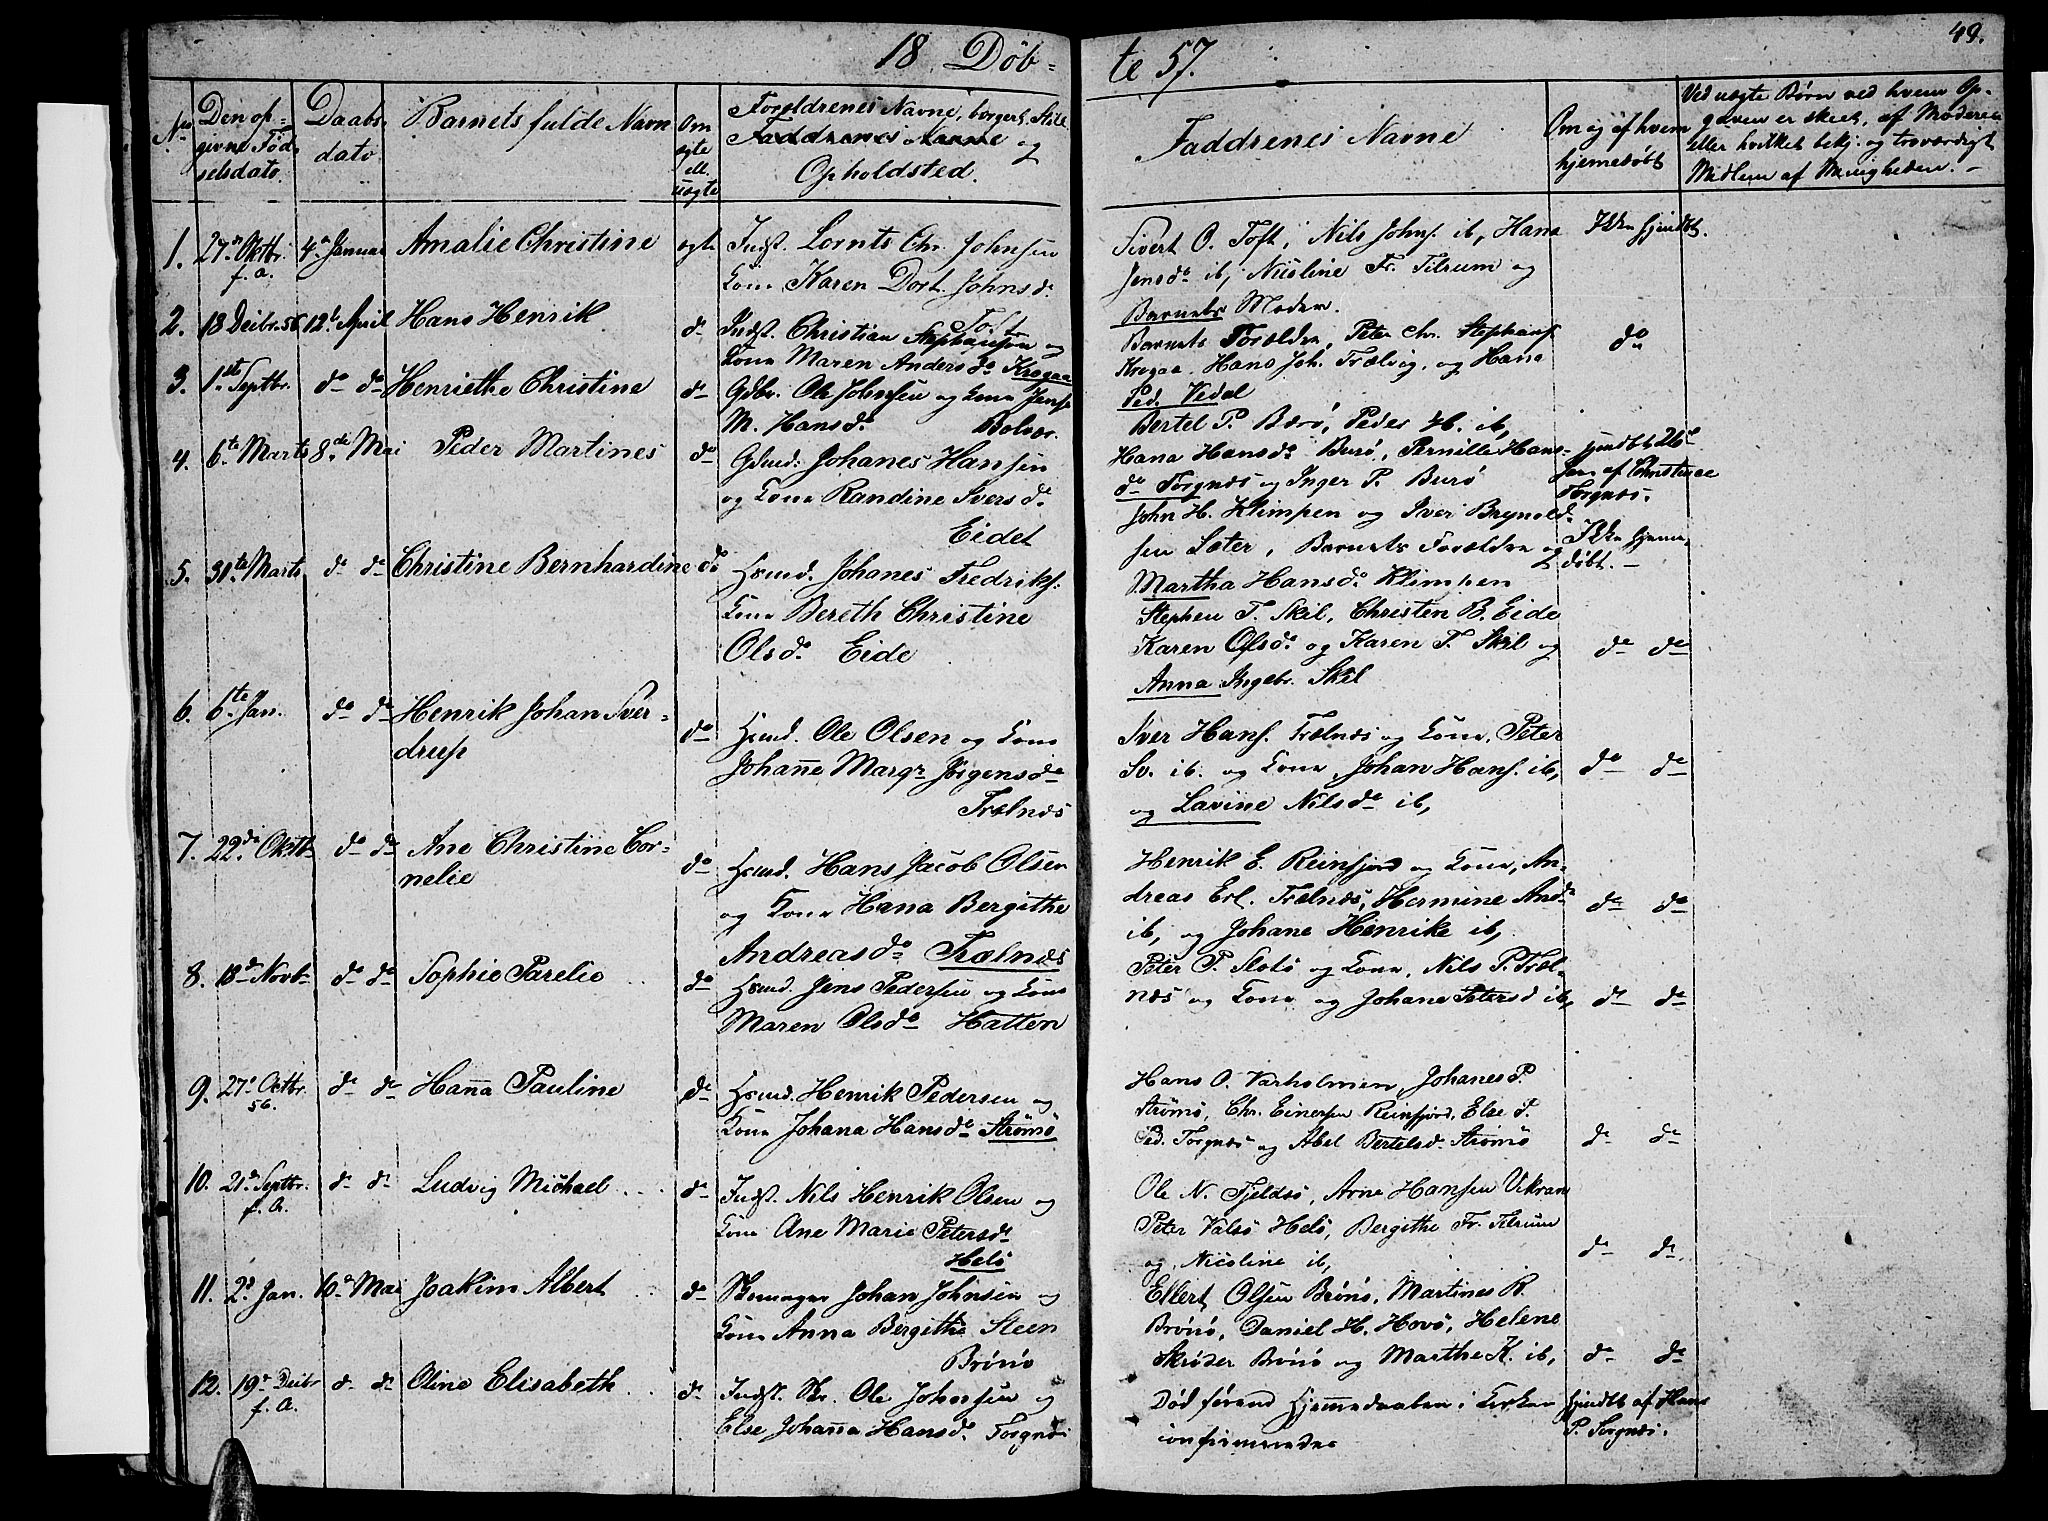 18 Døb=
te 57.
49.
No
Den op=
givne Föd
selsdato.
Daabs
dato
Barnets fulde Navn
Om
ægte
ell.
uægte
Foreldrenes Navne, borgerl. Still
Faddrenes Navne og
Opholdsted.
Faddrenes Navne
Om og af hvem
hjemedöbt
Ved uægte Börn ved hvem Op-
gaven er skeet, af Moderen
eller hvilket bekj. og troværdigt
Medlem af Menigheden.
1. 27de Oktbr. f. a. 4de Januar Amalie Christine ægte Indst. Lornts Chr. Johnsen
Kone Karen Dort. Johnsd.
Toft
Sivert O. Toft, Nils Johns. ib, Hana
Jensda ib, Nicoline Fr. Tilrum og
Barnets Moder.
Ikke hjmdbt.
2. 18 Decbr. 56 12te April Hans Henrik do Indst. Christian Stephansen og
Kone Maren Anders do Krogaa
Barnets Forældre, Peter Chr. Stephans.
Krogaa, Hans Joh. Trælvig, og Hana
Ped. Vedel
do
3. 1ste Septbr. do do Henriethe Christine do Gdbr. Ole Johnsen og Kone Jense
M. Hansdo Bolvær.
Bertel P. Burö, Peder H. ib,
Hana Hansdo Burö, Pernille Hans-
do Torgnæs og Inger P. Burö
hjmdbt 26de
Jan af Christiane
Torgnæs.
4. 6te Marts 8de Mai Peder Martines do Gdmd. Johanes Hansen
og Kone Randine Iversdo
Eidet
John H. Klimpen og Iver Brynild-
sen Sæter, Barnets Forældre og
Martha Hansdo Klimpen
Ikke hjeme-
döbt.
5. 31te Marts do do Christine Bernhardine do Hsmd. Johanes Fredriks.
Kone Bereth Christine
Olsdo Eide
Stephen T. Skil, Christen B. Eide
Karen Olsdo og Karen T. Skil og
Anna Ingebr. Skil
do do
6. 6te Jan. do do Henrik Johan Sver-
drup
do Hsmd. Ole Olsen og Kone
Johanne Margr. Jörgensdo
Trælnæs
Iver Hans. Trælnæs og Kone, Peter
Iv. ib. og Kone, Johan Hans. ib,
og Lavine Nilsdo ib,
do do
7. 22de Oktb do do Ane Christine Cor-
nelie
do Hsmd. Hans Jacob Olsen
og Kone Hana Bergithe
Andreasdo Trælnæs
Henrik E. Reinfjord og Kone, An-
dreas Erl. Trælnæs, Hermine Andda
ib, og Johane Henrike ib,
do do
8. 18de Novb do do Sophie Parelie do Hsmd. Jens Pedersen og Kone
Maren Olsdo Hatten
Peter P. Slots og Kone, Nils P. Træl-
næs og Kone og Johane Petersd ib,
do do
9. 27de Octbr. 56. do do Hanna Pauline do Hsmd. Henrik Pedersen og
Kone Johana Hansdo Strömö
Hans O. Varholmen, Johanes P.
Strömö, Chr. Einersen Reinfjord, Else P.
Ped. Torgnæs og Abel Bertelsd. Strömö
do do
10. 21de Septbr. f. A. do do Ludvig Michael do Indst. Nils Henrik Olsen og
Kone Ane Marie Petersdo
Helö
Ole N. Fjeldsö, Arne Hansen Vikran
Peter Valsö Helö, Bergithe Fr. Tilrum
og Nicoline ib,
do do
11. 2de Jan. 10de Mai Joakim Albert do Skomager Johan Johnsen og
Kone Anna Bergithe Steen
Brönö
Ellert Olsen Brönö, Martines R.
Brönö, Daniel H. Hovö, Helene
Skröder Brönö og Marthe K. ib,
do do
12. 19de Decbr f. A. do do Oline Elisabeth do Indst. Skr. Ole Johnsen og
Else Johanna Hansdo Torgnæs
Död förend Hjemmedaaben i Kirken
confirmeredes
hjmdbt af Hans
P. Torgnæs.